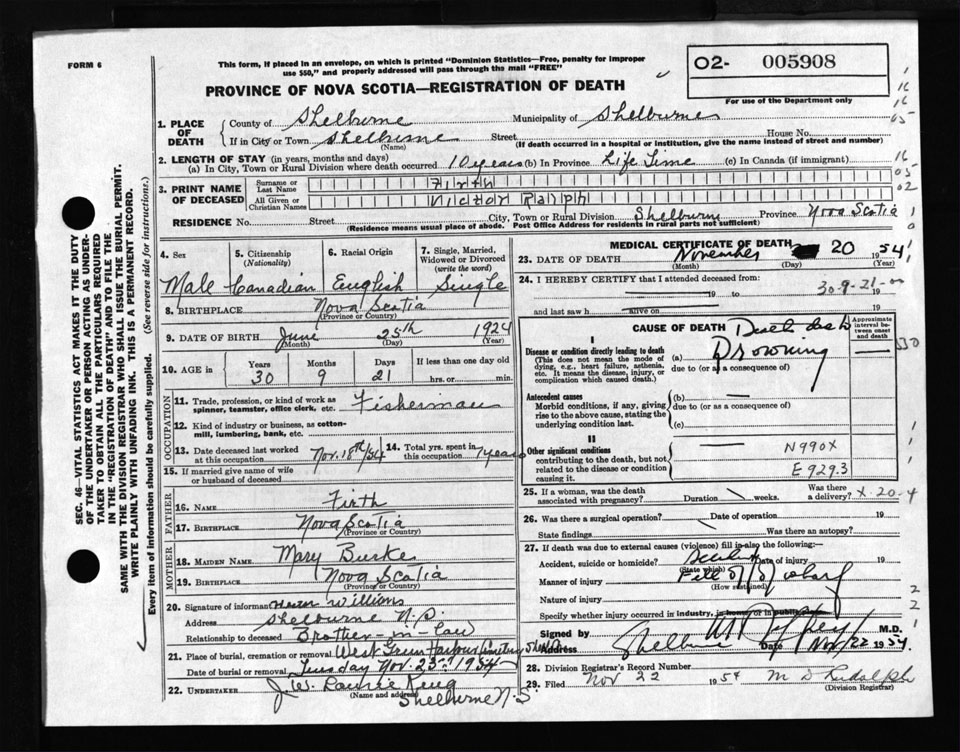 FORM 6
This form, if placed in an envelope, on which is printed "Dominion Statistics—Free, penalty for improper
use $50," and properly addressed will pass through the mail "FREE"
O2- 005908
For use of the Department only
PROVINCE OF NOVA SCOTIA—REGISTRATION OF DEATH
1. PLACE OF DEATH
County of Shelburne Municipality of Shelburne
If in City or Town Shelburne Street House No.
(Name) (If death occurred in a hospital or institution, give the name instead of street and number)
2. LENGTH OF STAY (in years, months and days)
(a) In City, Town or Rural Division where death occurred 10 years (b) In Province Life Time (c) In Canada (if immigrant)
3. PRINT NAME OF DECEASED
Surname or Last Name Firth
All Given or Christian Names Victor Ralph
RESIDENCE No. Street City, Town or Rural Division Shelburne Province Nova Scotia
(Residence means usual place of abode. Post Office Address for residents in rural parts not sufficient)
SEC. 46—VITAL STATISTICS ACT MAKES IT THE DUTY
OF THE UNDERTAKER OR PERSON ACTING AS UNDER-
TAKER TO OBTAIN ALL THE PARTICULARS REQUIRED
IN THE "REGISTRATION OF DEATH" AND TO FILE THE
SAME WITH THE DIVISION REGISTRAR WHO SHALL ISSUE THE BURIAL PERMIT.
WRITE PLAINLY WITH UNFADING INK. THIS IS A PERMANENT RECORD.
Every item of information should be carefully supplied. (See reverse side for instructions.)
4. Sex Male
5. Citizenship (Nationality) Canadian
6. Racial Origin English
7. Single, Married, Widowed or Divorced (write the word) Single
8. BIRTHPLACE Nova Scotia
(Province or Country)
9. DATE OF BIRTH June 25th 1924
(Month) (Day) (Year)
10. AGE in Years 30 Months 9 Days 21 If less than one day old hrs. or min.
OCCUPATION
11. Trade, profession, or kind of work as spinner, teamster, office clerk, etc. Fisherman
12. Kind of industry or business, as cotton-mill, lumbering, bank, etc.
13. Date deceased last worked at this occupation Nov. 18th/54
14. Total yrs. spent in this occupation 7 years
15. If married give name of wife or husband of deceased
FATHER
16. NAME Firth
17. BIRTHPLACE Nova Scotia
(Province or Country)
MOTHER
18. MAIDEN NAME Mary Burke
19. BIRTHPLACE Nova Scotia
(Province or Country)
20. Signature of informant Williams
Address Shelburne N.S.
Relationship to deceased Brother-in-law
21. Place of burial, cremation or removal West Green Harbour Cemetery
Date of burial or removal Tuesday Nov. 23rd 1954
22. UNDERTAKER J. W.
(Name and address) Shelburne N.S.
MEDICAL CERTIFICATE OF DEATH
23. DATE OF DEATH November 20 1954
(Month) (Day) (Year)
24. I HEREBY CERTIFY that I attended deceased from:
30-9-21-00
19 to 19
and last saw h alive on 19
CAUSE OF DEATH
Approximate interval between onset and death
I
Disease or condition directly leading to death (a) Drowning
(This does not mean the mode of dying, e.g., heart failure, asthenia, etc. It means the disease, injury, or complication which caused death.)
due to (or as a consequence of)
Antecedent causes
Morbid conditions, if any, giving rise to the above cause, stating the underlying condition last.
(b)
due to (or as a consequence of)
(c)
II
Other significant conditions
contributing to the death, but not related to the disease or condition causing it.
N990X
E929.3
25. If a woman, was the death associated with pregnancy? Duration weeks. Was there a delivery? X-20-4
26. Was there a surgical operation? Date of operation
State findings Was there an autopsy?
27. If death was due to external causes (violence) fill in also the following:—
Accident, suicide or homicide? Date of injury 19
(State which)
Manner of injury Fell off wharf
(How sustained)
Nature of injury
Specify whether injury occurred in industry, in home or in public place
Signed by M.D.
Address Shelburne Date Nov/22 1954
28. Division Registrar's Record Number
29. Filed Nov 22 1954 M D Rudolph
(Division Registrar)